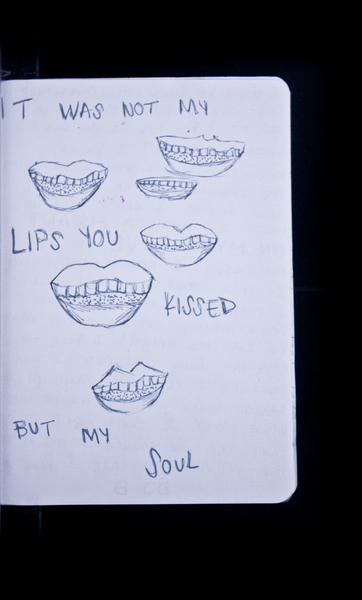 IT WAS NOT MY
LIPS YOU
KISSED
BUT MY
SOUL